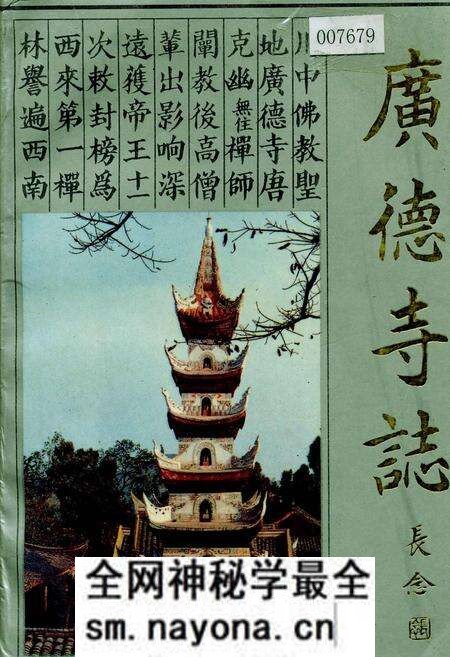 007679
廣德寺誌
長念
川中佛教聖
地廣德寺唐
克幽無住禪師
闡教後高僧
輩出影响深
遠獲帝王十一
次敕封榜為
西來第一禪
林譽遍西南
全网神秘学最全
sm.nayona.cn